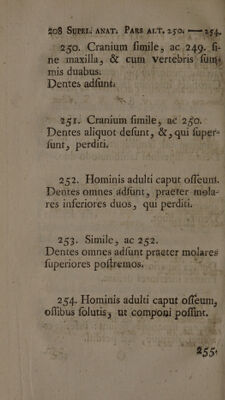 208 SUPEL. ANAT. PARS ALT. 250. — 254.
250. Cranium ſimile, ac 249. ſi-
ne maxilla, & cum vertebris ſum-
mis duabus.
Dentes adſunt.
251. Cranium ſimile, ac 250.
Dentes aliquot deſunt, &, qui ſuper-
ſunt, perditi.
252. Hominis adulti caput oſſeum.
Dentes omnes adſunt, praeter mola-
res inferiores duos, qui perditi.
253. Simile, ac 252.
Dentes omnes adſunt praeter molares
ſuperiores poſtremos.
254. Hominis adulti caput oſſeum,
oſſibus ſolutis, ut componi poſſint.
255.